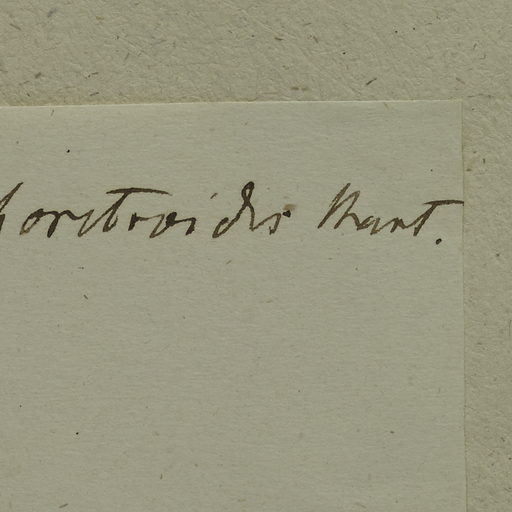 horstroides Mart.